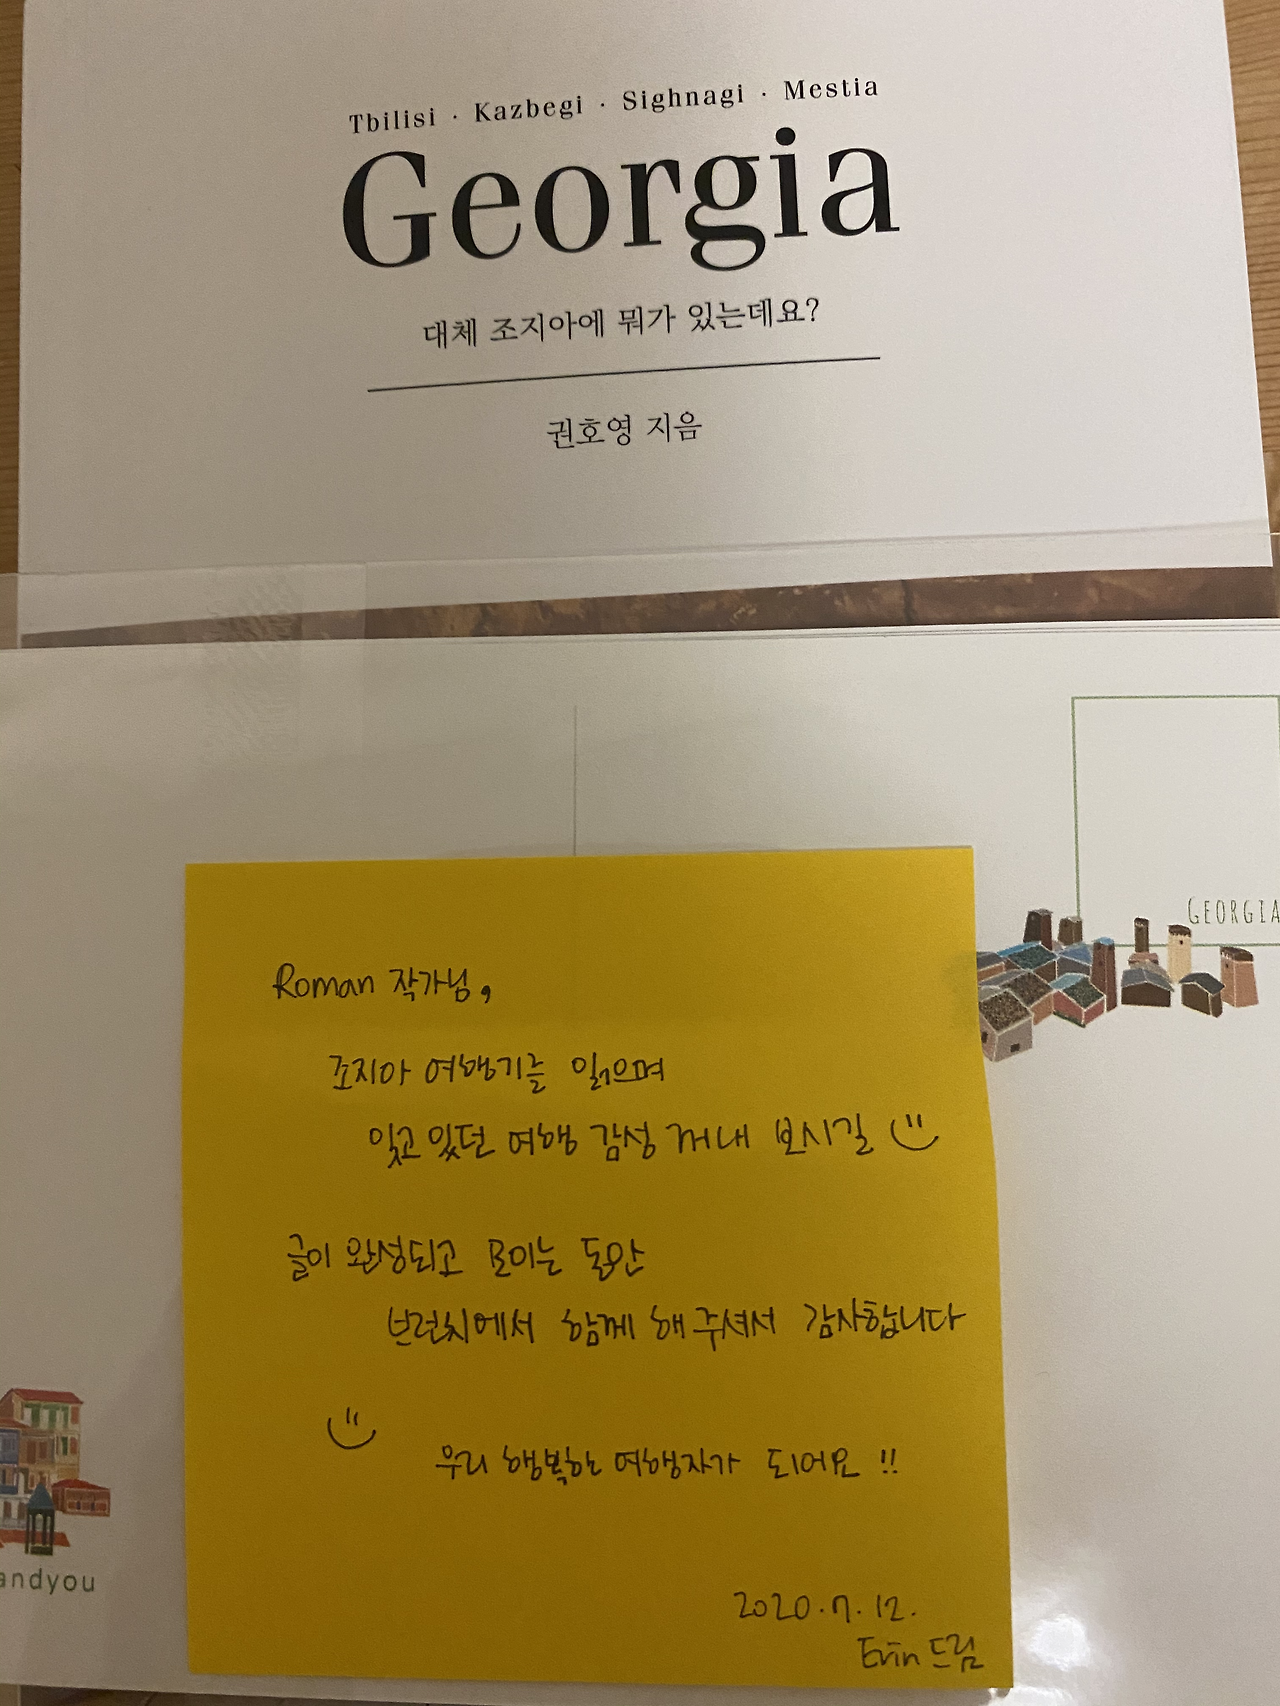 Tbilisi · Kazbegi · Sighnagi · Mestia
Georgia
대체 조지아에 뭐가 있는데요?
권호영 지음
GEORGIA
Roman 작가님,
조지아 여행기를 읽으며
잊고 있던 여행 감성 꺼내 보시길
글이 완성되고 모이는 동안
브런치에서 함께 해 주셔서 감사합니다
우리 행복한 여행자가 되어요 !!
andyou
2020.7.12.
Erin 드림